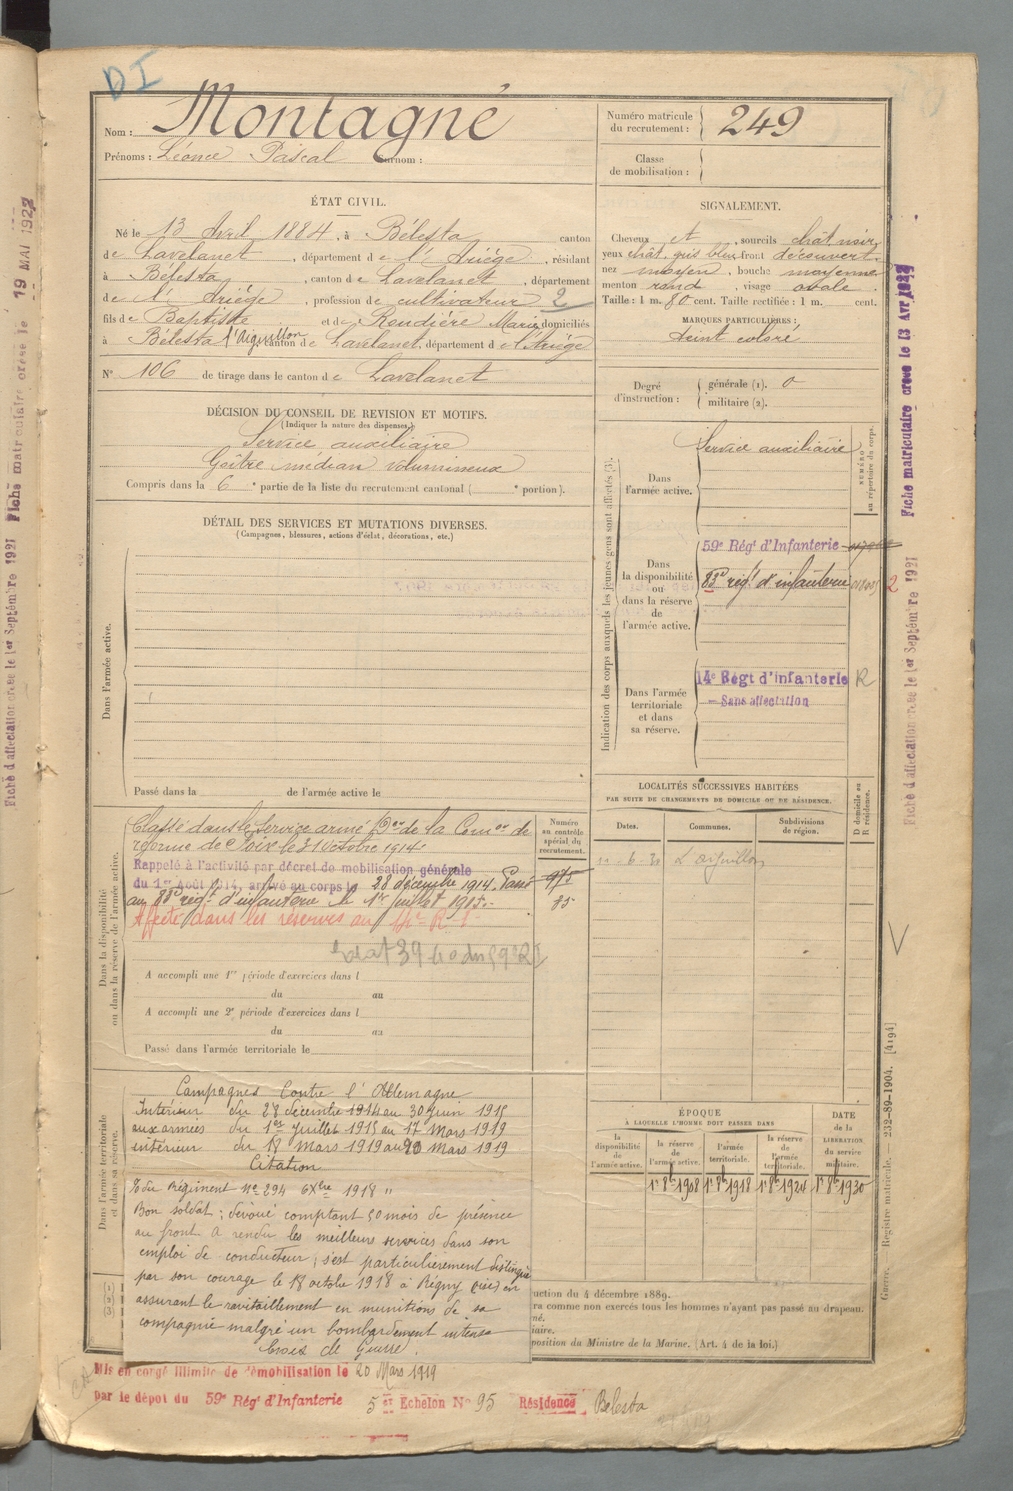 DI
Nom : Montagné
Prénoms : Léonce Pascal Surnom :
Numéro matricule
du recrutement : 249
Classe
de mobilisation :
ÉTAT CIVIL.
Né le 13 Avril 1884, à Bélesta canton
de Lavelanet, département de l'Ariège, résidant
à Bélesta, canton de Lavelanet, département
de l'Ariège, profession de cultivateur 2
fils de Baptiste et de Roudière Marie domiciliés
à Bélesta l'Aiguillon canton de Lavelanet, département de l'Ariège
N° 106 de tirage dans le canton de Lavelanet
SIGNALEMENT.
Cheveux et, sourcils chât noir,
yeux chât. gris bleu front découvert.
nez moyen, bouche moyenne
menton rond, visage ovale.
Taille : 1 m. 80 cent. Taille rectifiée : 1 m. cent.
MARQUES PARTICULIÈRES :
teint coloré
Degré
d'instruction :
générale (1). 0
militaire (2).
DÉCISION DU CONSEIL DE REVISION ET MOTIFS.
(Indiquer la nature des dispenses.)
Service auxiliaire
Goître médian volumineux
Compris dans la 6e partie de la liste du recrutement cantonal ( e portion).
DÉTAIL DES SERVICES ET MUTATIONS DIVERSES.
(Campagnes, blessures, actions d'éclat, décorations, etc.)
Dans l'armée active.
Passé dans la de l'armée active le
Indication des corps auxquels les jeunes gens sont affectés (3).
NUMÉRO
au répertoire du corps.
Dans
l'armée active.
Service auxiliaire
Dans
la disponibilité
ou
dans la réserve
de
l'armée active.
59e Régt d'Infanterie
83e régt d'infanterie
2
Dans l'armée
territoriale
et dans
sa réserve.
14e Régt d'infanterie R
- Sans affectation
LOCALITÉS SUCCESSIVES HABITÉES
PAR SUITE DE CHANGEMENTS DE DOMICILE OU DE RÉSIDENCE.
Dates.
Communes.
Subdivisions
de région.
D domicile ou
R résidence.
L'aiguillon
Dans la disponibilité
ou dans la réserve de l'armée active.
Numéro
au contrôle
spécial du
recrutement.
Classé dans le Service armé Don de la Comon de
réforme de Foix le 31 Octobre 1914.
Rappelé à l'activité par décret de mobilisation générale
du 1er Août 1914, arrivé au corps le 28 décembre 1914. Passé
au 83e régt d'infanterie le 1er juillet 1915.
975
85
Affecté dans les réserves au
A accompli une 1re période d'exercices dans l
du au
A accompli une 2e période d'exercices dans l
du au
Passé dans l'armée territoriale le
Dans l'armée territoriale
et dans sa réserve.
Campagnes Contre l'Allemagne
Intérieur du 28 décembre 1914 au 30 Juin 1915
aux armées du 1er Juillet 1915 au 17 Mars 1919
intérieur du 18 Mars 1919 au 20 Mars 1919
Citation
du Régiment No 294 1918 "
Bon soldat ; dévoué comptant 50 mois de présence
au front A rendu les meilleurs services dans son
emploi de conducteur ; s'est particulièrement distingué
par son courage le 18 octobre 1918 à Régny en
assurant le ravitaillement en munitions de sa
compagnie malgré un bombardement intense
Croix de Guerre.
ÉPOQUE
À LAQUELLE L'HOMME DOIT PASSER DANS
la
disponibilité
de
l'armée active.
la réserve
de
l'armée active.
l'armée
territoriale.
la réserve
de
l'armée
territoriale.
DATE
de la
LIBÉRATION
du service
militaire.
1r 8b 1908
1r 8b 1918
1r 8b 1924
1r 8b 1930
(1)
(2)
(3)
uction du 4 décembre 1889.
ra comme non exercés tous les hommes n'ayant pas passé au drapeau.
né.
iaire.
position du Ministre de la Marine. (Art. 4 de la loi.)
Mis en congé illimité de démobilisation le 20 Mars 1919
par le dépôt du 59e Régt d'Infanterie 5er Echelon No 95 Résidence Bélesta
Guerre. Registre matricule. — 232-89-1904. [4194]
Fiche matriculaire créée le 13 Avr 1922
Fiche d'affectation créée le 1er Septembre 1921
Fiche matriculaire créée le 19 MAI 1922
Fiche d'affectation créée le 1er Septembre 1921